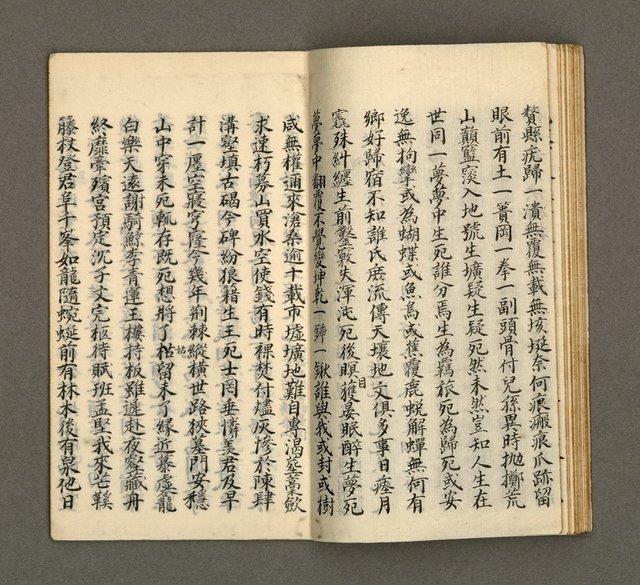 贅縣疣歸一潰無覆無載無垓埏奈何痕瀫浪爪跡留
眼前有土一簣岡一拳一副頭骨付兒孫異時拋擲荒
山巔籃窾入地號生壙疑生疑死然未然豈知人生在
世同一夢夢中生死誰分焉生為羈旅死為歸死或安
逸無拘攣或為蝴蝶或魚鳥或蕉覆鹿蛻解蟬無何有
鄉好歸宿不知誰氏庶流傳天壤地文俱多事日瘞月
竁殊糾纏生前鑿竅失渾沌死後瞑目獲晏眠醉生夢死
夢夢中翻覆不覺變坤乾一鍤一鍬誰與我或封或樹
咸無權邇來滄桑逾十載市墟壙地難自專渴葬藁斂
求速朽募山買水空使錢有時裸焚付燼灰慘於陳肆
溝壑填古碣今碑紛狼藉生王死士罔垂憐羨君及早
計一廛空寢穹窿今幾年荊棘縱橫世路狹墓門安穩
山中穿未死軱存既死想將了枯留未了緣近摹虛龍
白樂天遠謝騎鯨李青蓮玉樓持板雖遽赴夜壑藏舟
終靡牽殯宮預定沈子丈完柩待眠班孟堅我來芒鞵
籐杖登君阜千峯如龍隨蜿蜒前有林木後有泉他日